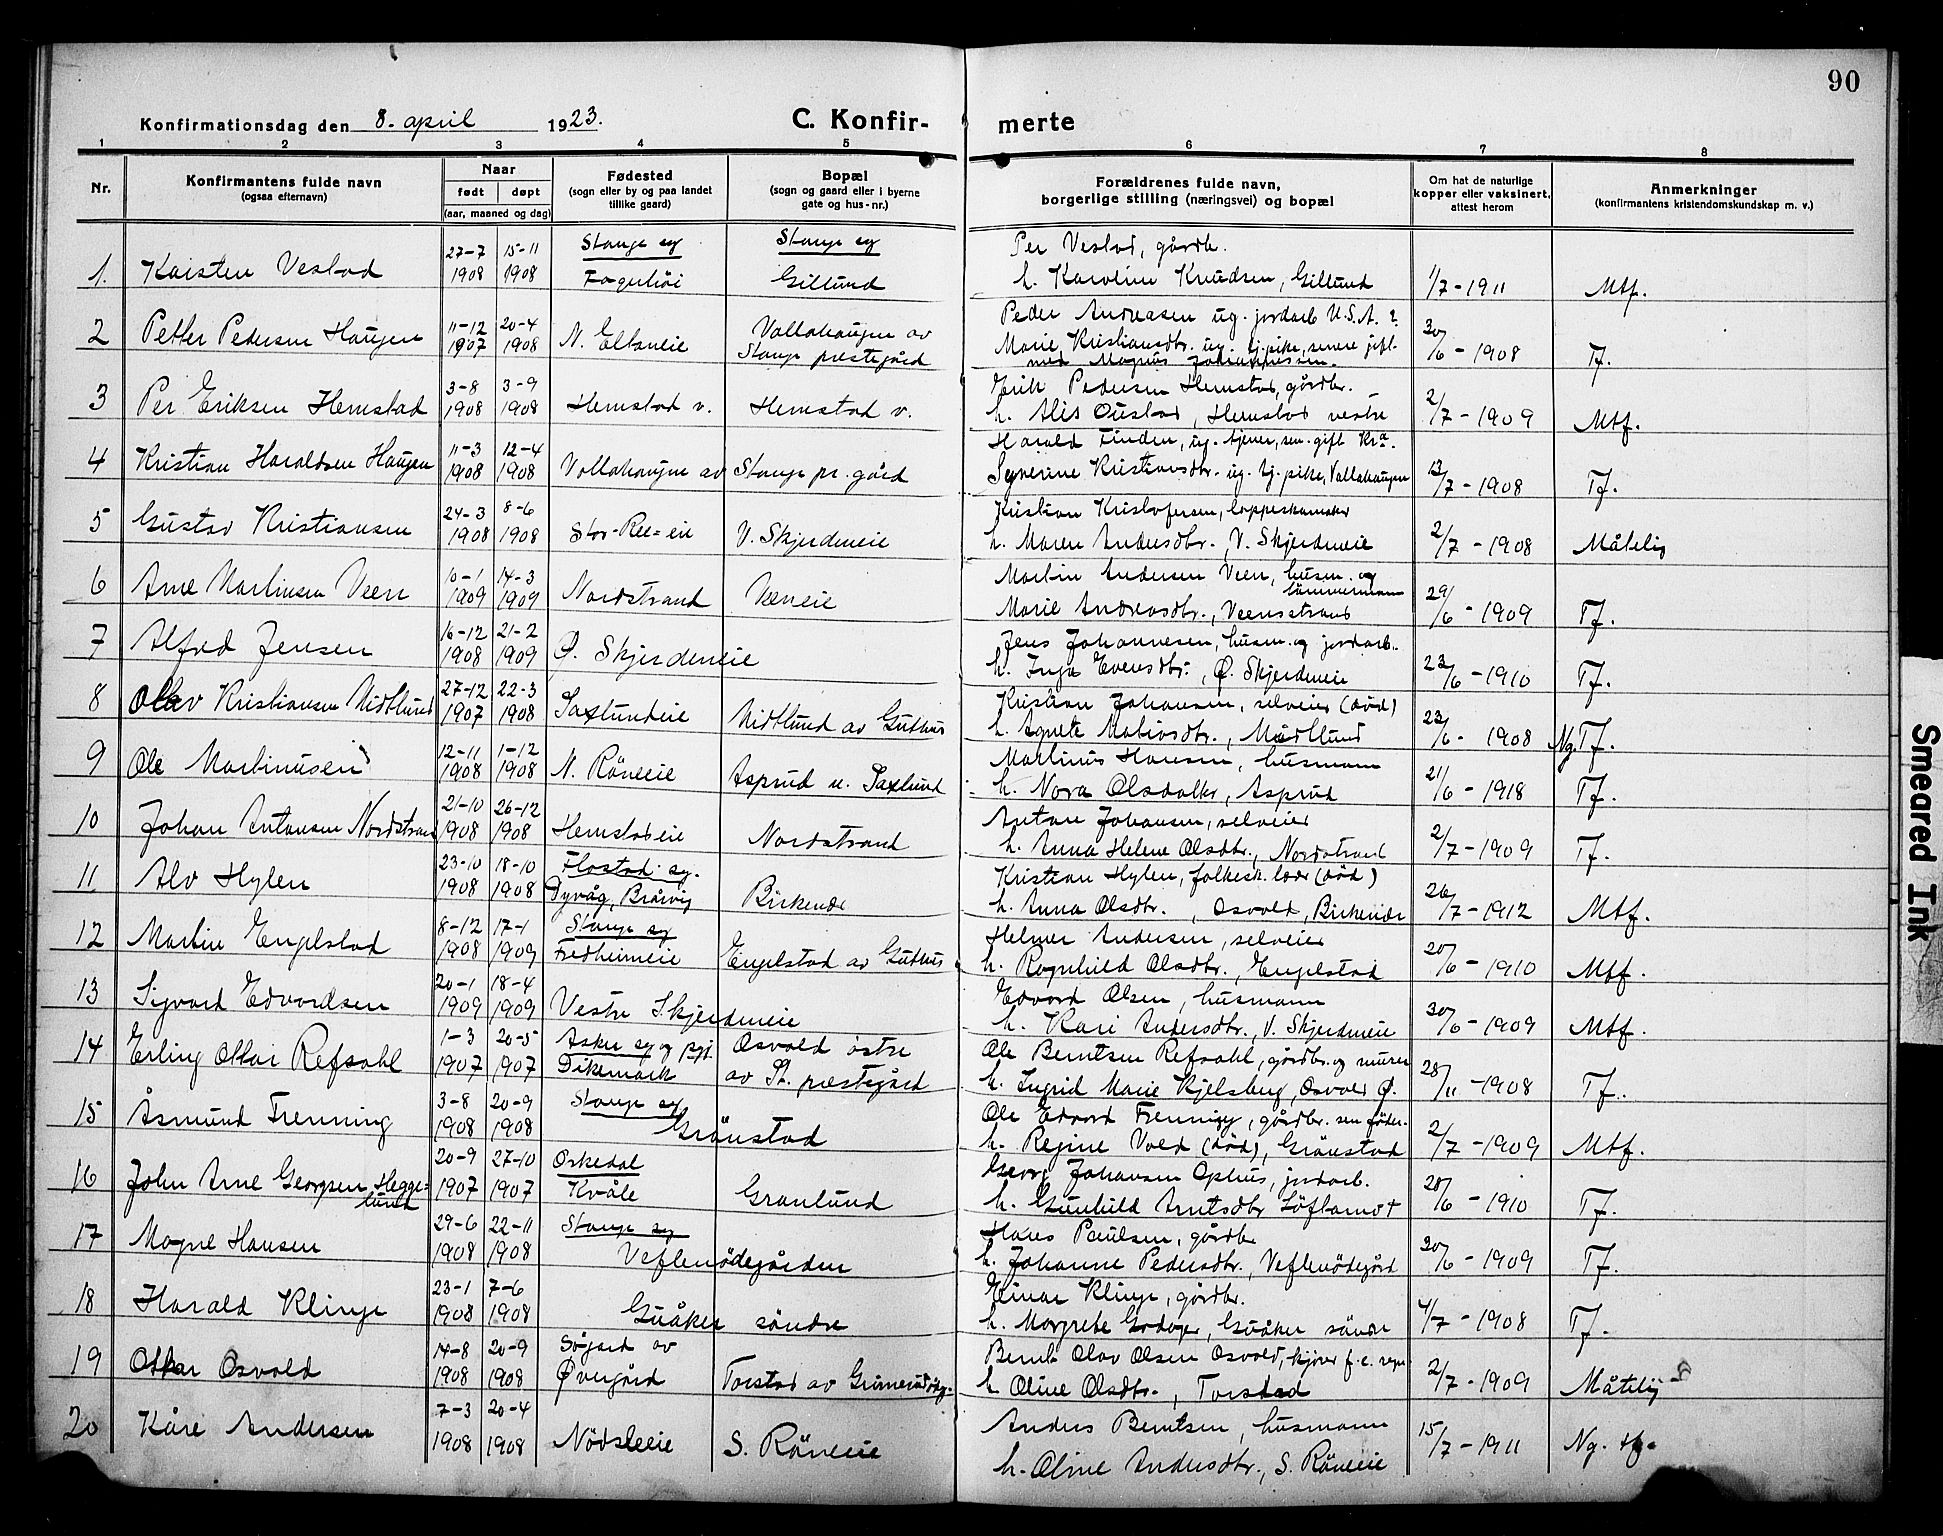 90
Konfirmationsdag den 8. april 1923.
C. Konfir- merte
1 2 3 4 5 6 7 8
Nr.
Konfirmantens fulde navn
(ogsaa efternavn)
Naar
født døpt
(aar, maaned og dag)
Fødested
(sogn eller by og paa landet
tillike gaard)
Bopæl
(sogn og gaard eller i byerne
gate og hus-nr.)
Forældrenes fulde navn,
borgerlige stilling (næringsvei) og bopæl
Om hat de naturlige
kopper eller vaksinert,
attest herom
Anmerkninger
(konfirmantens kristendomskundskap m. v.)
27-7 15-11 Stange sg Stange sg Per Vestad, gårdb.
1. Karsten Vestad 1908 1908 Fagerhøi Gillund h. Karoline Knudsen, Gillund 1/7-1911 Mtf.
11-12 20-4 Vollahaugen av Peder Andreasen ug. jordarb U.S.A. ?
2 Petter Pedersen Haugen 1907 1908 N. Ellaveie Stange prestegård Marie Kristiansdtr. ug. tj.pike, senere gift 30/6-1908 Tf.
med Magnus Johannessen.
3-8 3-9 Erik Pedersen Hemstad, gårdbr.
3 Per Eriksen Hemstad 1908 1908 Hemstad v. Hemstad v. h. Alis Oustad, Hemstad vestre 2/7-1909 Mtf.
11-3 12-4 Harald Finden, ug. tjener, sen. gift Kra.
4 Kristian Haraldsen Haugen 1908 1908 Vollahaugen av Stange pr. gård Syverine Kristiansdtr. ug. tj. pike, Vollahaugen 13/7-1908 Tf.
24-3 8-6 Kristian Kristofersen,
5 Gustav Kristiansen 1908 1908 Stor-Ree=eie V. Skjerdeneie h. Maren Andersdtr., V. Skjerdeneie 2/7-1908 Måtelig
10-1 14-3 Martin Andersen Veen, husm. og
tømmermann
6 Arne Martinsen Veen 1909 1909 Nordstrand Veeneie Marie Andreasdtr., Veensstrand 29/6-1909 Tf.
16-12 21-2 Jens Johannesen, husm. og jordarb.
7 Alfred Jensen 1908 1909 Ø. Skjerdeneie h. Inga Evensdtr., Ø. Skjerdeneie 23/6-1910 Tf.
27-12 22-3 Kristian Johansen, selveier (død)
8 Olav Kristiansen Midtlund 1907 1908 Saxlundeie Midtlund av Guthus h. Agnete Matiasdtr., Midtlund 23/6-1908 Ng. Tf.
12-11 1-12 Martinus Hansen, husmann
9 Ole Martinusen 1908 1908 N. Røneeie Asprud u. Saxlund h. Nora Olsdatter, Asprud 21/6-1918 Tf.
21-10 26-12 Anton Johansen, selveier
10 Johan Antonsen Nordstrand 1908 1908 Hemstadeie Nordstrand h. Anna Helene Olsdtr., Nordstrand 2/7-1909 Tf.
23-10 18-10 Flostad sg. Kristian Hylen, folkesk. lærer (død)
11 Alv Hylen 1908 1908 Dyvåg, Bråvig Birkenær h. Anna Olsdtr., Osvold, Birkenær 26/7-1912 Mtf.
8-12 17-1 Stange sg Helmer Andersen, selveier
12 Martin Engelstad 1908 1909 Fredheimeie Engelstad av Guthus h. Ragnhild Olsdtr., Engelstad 20/6-1910 Mtf.
20-1 18-4 Edvard Olsen, husmann
13 Sigvard Edvardsen 1909 1909 Vestre Skjerdeneie h. Kari Andersdtr., V. Skjerdeneie 30/6-1909 Mtf.
1-3 20-5 Asker sg og pgj. Osvold østre Ole Berntsen Refsahl, gårdbr. og murer
14 Erling Ottar Refsahl 1907 1907 Dikemark av St. prestegård h. Ingrid Marie Kjelsberg, Osvold Ø. 28/11-1908 Tf.
3-8 20-9 Stange sg Ole Edvard Frenning, gårdbr. sen føder.
15 Åsmund Frenning 1908 1908 Grønstad h. Regine Vold (død), Grønstad 2/7-1909 Mtf.
20-9 27-10 Orkedal Georg Johansen Ophus, jordarb.
16 John Arne Georgsen Hegge=
lund 1907 1907 Kvåle Granlund h. Gunhild Arntsdtr 20/6-1910 Tf.
29-6 22-11 Stange sg Hans Paulsen, gårdbr
17 Magne Hansen 1908 1908 Veflenødegården h. Johanne Pedersdtr., Veflenødegård 20/6-1909 Tf.
23-1 7-6 Einar Klinge, gårdbr.
18 Harald Klinge 1908 1908 Guåker søndre h. Margrete Godager, Guåker søndre 4/7-1908 Tf.
14-8 20-9 Søgard av Bernt Olav Olsen Osvold, kjører
19 Ottar Osvold 1908 1908 Øvergård Torstad av Grimerudødeg. h. Oline Olsdtr., Torstad 2/7-1909 Måtelig
7-3 20-4 Anders Berntsen, husmann
20 Kåre Andersen 1908 1908 Nødsleeie S. Røneeie h. Oline Andersdtr., S. Røneeie 15/7-1911 Ng. tf.
Smeared Ink